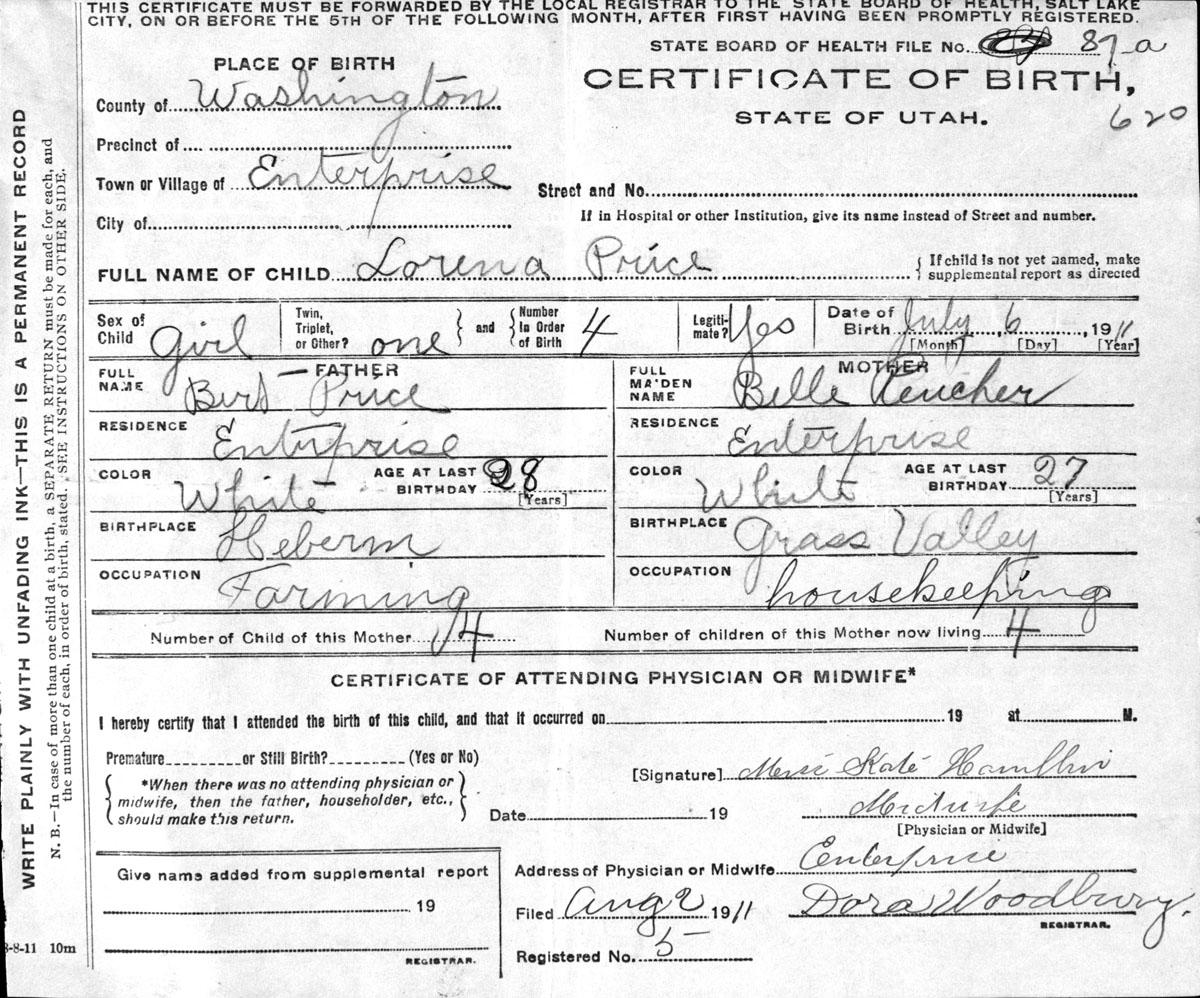 THIS CERTIFICATE MUST BE FORWARDED BY THE LOCAL REGISTRAR TO THE STATE BOARD OF HEALTH, SALT LAKE
CITY, ON OR BEFORE THE 5TH OF THE FOLLOWING MONTH, AFTER FIRST HAVING BEEN PROMPTLY REGISTERED.
STATE BOARD OF HEALTH FILE No. 87-a
PLACE OF BIRTH
CERTIFICATE OF BIRTH,
County of Washington
STATE OF UTAH.
620
Precinct of
Town or Village of Enterprise
Street and No.
City of
If in Hospital or other Institution, give its name instead of Street and number.
FULL NAME OF CHILD Lorena Price
{ If child is not yet named, make
supplemental report as directed
Sex of Child Girl
Twin, Triplet, or Other? one
and
Number In Order of Birth 4
Legiti-mate? Yes
Date of Birth July 6, 1911
[Month] [Day] [Year]
FATHER
FULL NAME Bert Price
MOTHER
FULL MAIDEN NAME Belle Rencher
RESIDENCE Enterprise
RESIDENCE Enterprise
COLOR White
AGE AT LAST BIRTHDAY 28
[Years]
COLOR White
AGE AT LAST BIRTHDAY 27
[Years]
BIRTHPLACE
BIRTHPLACE Grass Valley
OCCUPATION Farming
OCCUPATION housekeeping
Number of Child of this Mother 4
Number of children of this Mother now living 4
CERTIFICATE OF ATTENDING PHYSICIAN OR MIDWIFE*
I hereby certify that I attended the birth of this child, and that it occurred on 19 at M.
Premature or Still Birth? (Yes or No)
*When there was no attending physician or
midwife, then the father, householder, etc.,
should make this return.
[Signature] Kate Hamblin
Date 19
[Physician or Midwife]
Address of Physician or Midwife
Filed Aug 2 1911
Dora Woodbury.
REGISTRAR.
Registered No. 5
Give name added from supplemental report
19
REGISTRAR.
3-8-11 10m
WRITE PLAINLY WITH UNFADING INK—THIS IS A PERMANENT RECORD
N. B.—In case of more than one child at a birth, a SEPARATE RETURN must be made for each, and
the number of each, in order of birth, stated. SEE INSTRUCTIONS ON OTHER SIDE.